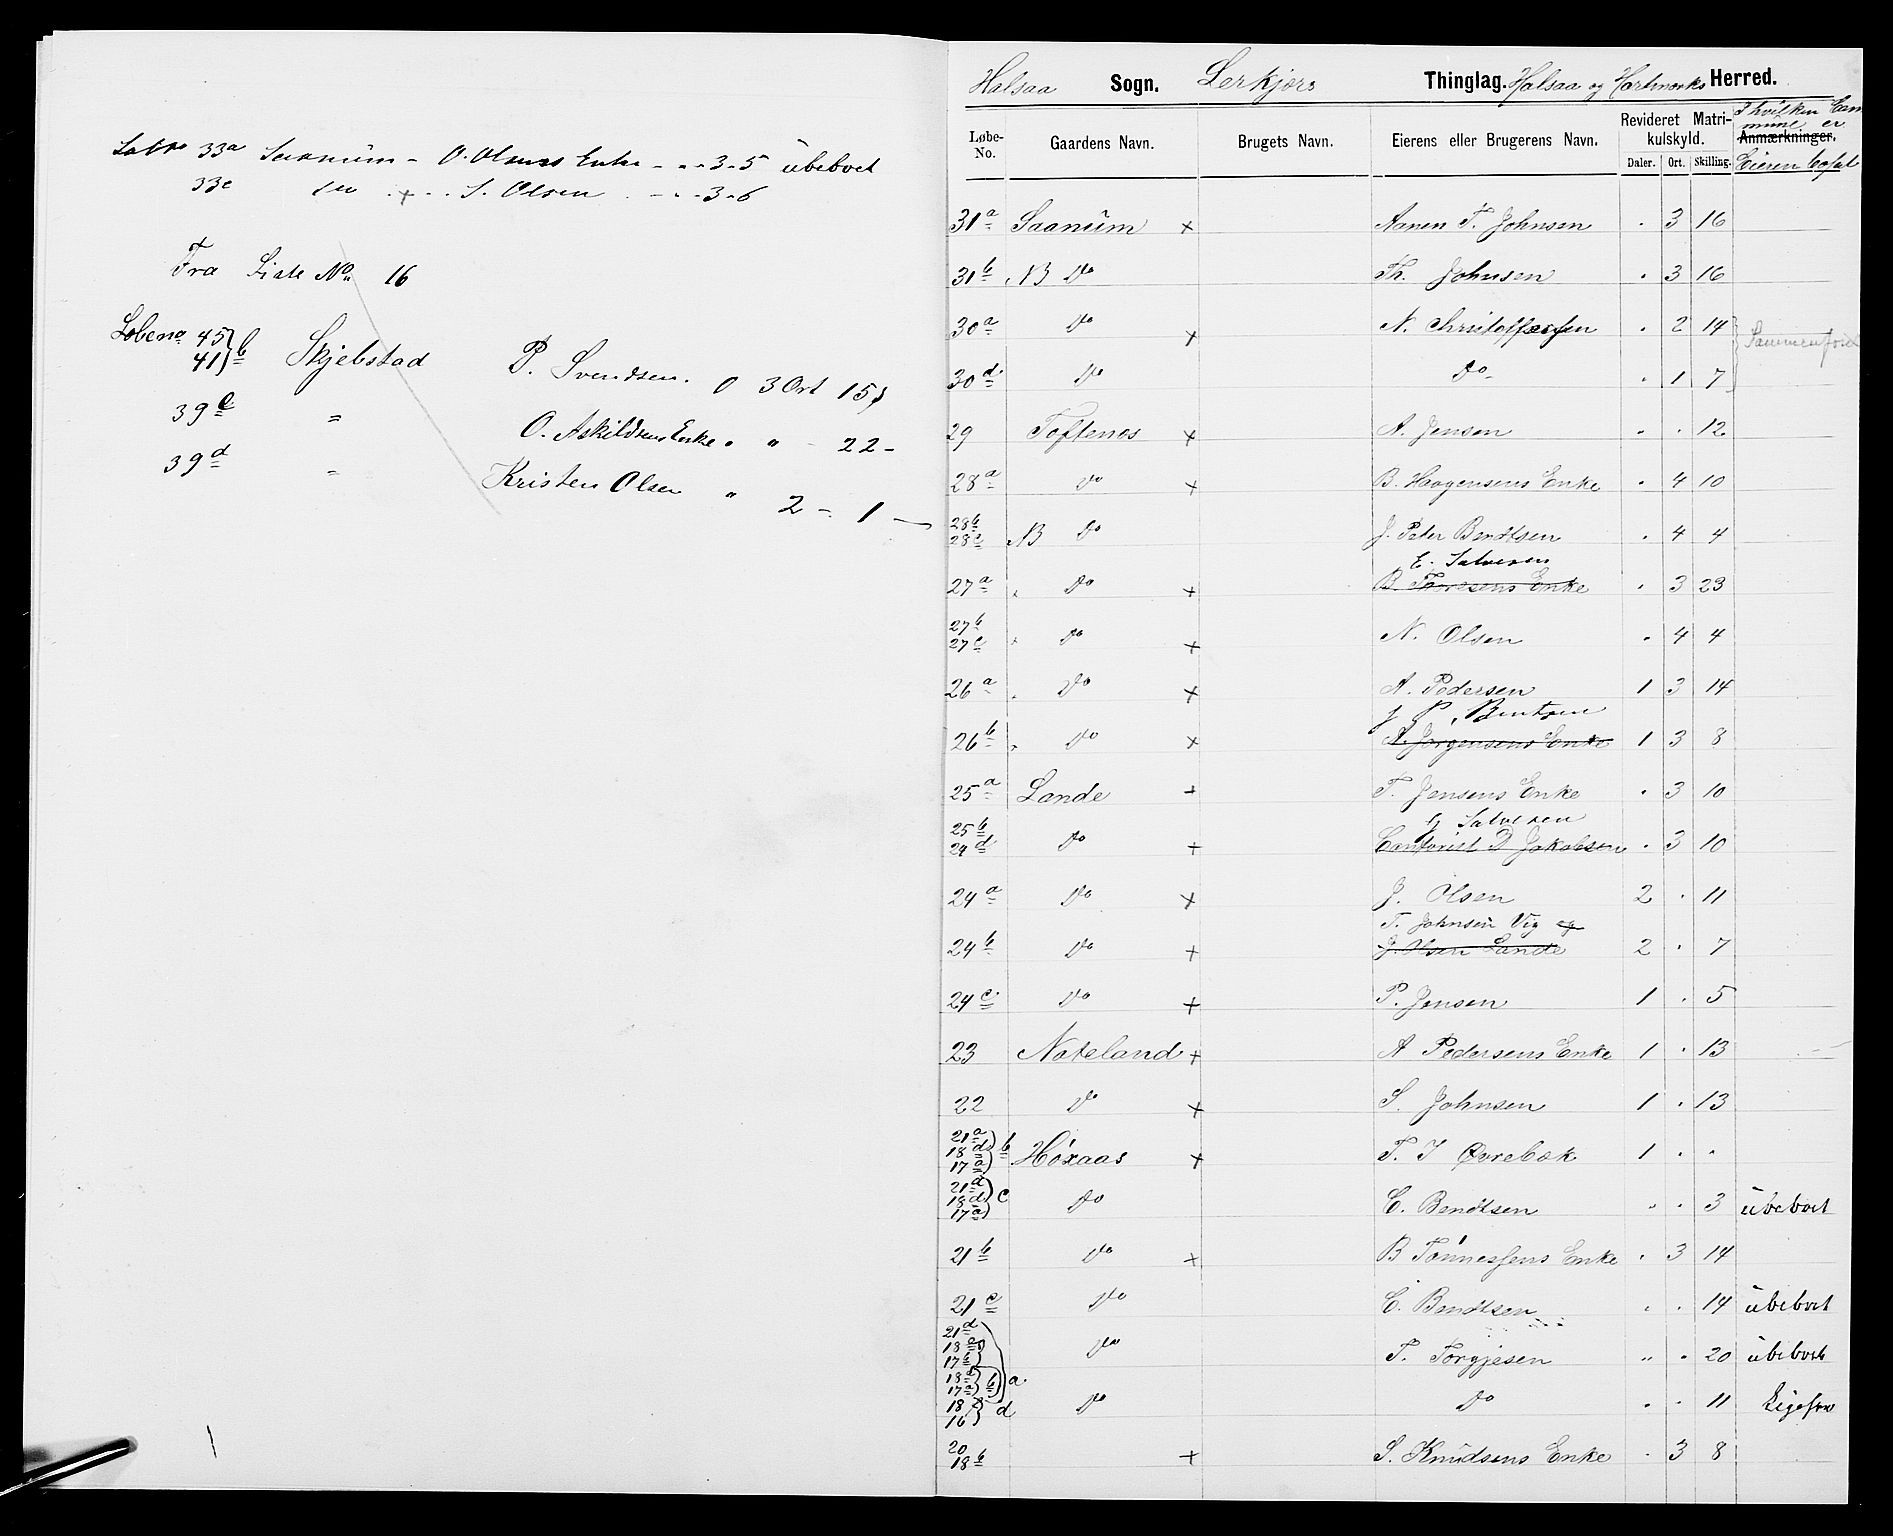 Løbno 33a Saanüm - O. Olsens Enke - " - 3 - 5 übeboet
33c do + S. Olsen - " - 3 - 6
Fra Liste No 16
Løbeno 45 } b Skjebstad P. Svendsen. 0 3 Ort 15 s
41
39 c " O. Askildsens Enke " " - 22 -
39 d " Kristen Olsen " 2 - 1 -
Halsaa Sogn. Lerkjærs Thinglag. Halsaa og Hartmarks Herred.
Løbe-No. Gaardens Navn. Brugets Navn. Eierens eller Brugerens Navn. Revideret Matrikulskyld. Daler. Ort. Skilling. Anmærkninger.
I hvilken Commune er Eieren bosat
31 a Saanüm + Aanen T. Johnsen . 3 16
31 b NB Do Th. Johnsen . 3 16
30 a Do + N. Christoffersen . 2 14
30 d Do Do . 1 7
29 Toftenes + A. Jensen . . 12
28 a Do + B. Haagensens Enke . 4 10
28 b
28 c NB Do J. Peter Bendtsen . 4 4
E. Salvesen
27 a " Do + B. Taaresens Enke . 3 23
27 b
27 c " Do + N. Olsen . 4 4
26 a " Do + A. Pedersen 1 3 14
J. P. Bentsen
26 b " Do + A. Jørgensens Enke 1 3 8
25 a Lande + T. Jensens Enke . 3 10
G Salvesen
25 b
24 d Do + D Jakobsen . 3 10
24 a Do + J. Olsen 2 . 11
T. Johnsen Vig og
24 b Do + J. Olsen Lande 2 . 7
24 c Do + P. Jensen 1 . 5
23 Nateland + A Pedersens Enke 1 . 13
22 Do + S. Johnsen 1 . 13
21 a
18 d } b Høxaas + T. I Øvrebæk 1 . .
17 a
21 d
18 d } c Do C. Bendtsen . . 3 übeboet
17 a
21 b Do + B Tønnessens Enke . 3 14
21 c Do C. Bendtsen . . 14 übeboet
21 d
18 c Do T. Torgjesen " . 20 übeboet
17 b
18 a
17 a } b } a
18
16 } d Do Do . . 11 Ligesom
20
18 b + S. Knüdsens Enke . 3 8